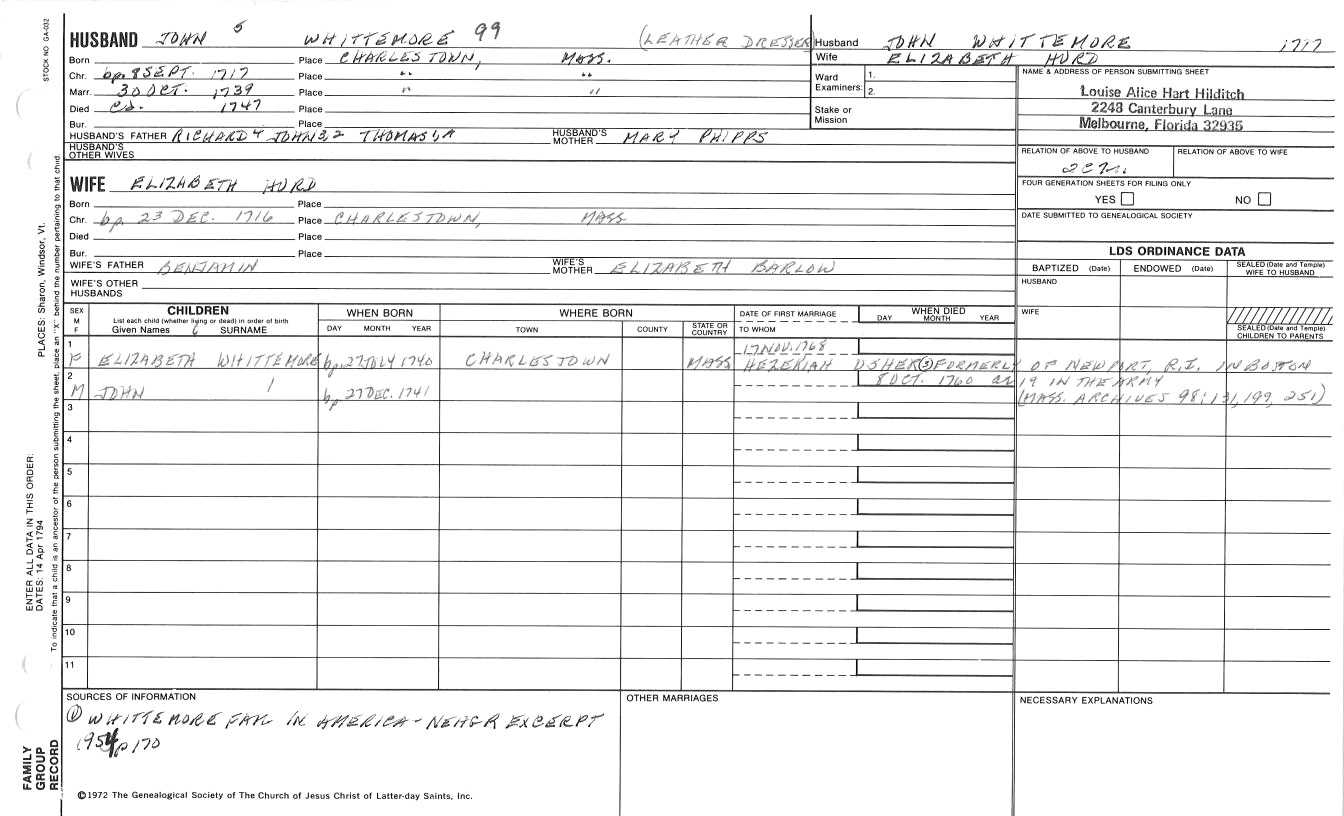 STOCK NO. GA-032
HUSBAND JOHN 5 WHITTEMORE 99 (LEATHER DRESSER)
Born Place CHARLESTOWN, MASS.
Chr. bp. 8 SEPT. 1717 Place " "
Marr. 30 OCT. 1739 Place " "
Died ca. 1747 Place
Bur. Place
HUSBAND'S FATHER RICHARD 4 JOHN 3, 2 THOMAS 1, A HUSBAND'S MOTHER MARY PHIPPS
HUSBAND'S OTHER WIVES
Husband JOHN WHITTEMORE 1717
Wife ELIZABETH HURD
Ward Examiners: 1. 2.
Stake or Mission
NAME & ADDRESS OF PERSON SUBMITTING SHEET
Louise Alice Hart Hilditch
2248 Canterbury Lane
Melbourne, Florida 32935
RELATION OF ABOVE TO HUSBAND RELATION OF ABOVE TO WIFE
FOUR GENERATION SHEETS FOR FILING ONLY
YES NO
DATE SUBMITTED TO GENEALOGICAL SOCIETY
WIFE ELIZABETH HURD
Born Place
Chr. bp 23 DEC. 1716 Place CHARLESTOWN, MASS
Died Place
Bur. Place
WIFE'S FATHER BENJAMIN WIFE'S MOTHER ELIZABETH BARLOW
WIFE'S OTHER HUSBANDS
LDS ORDINANCE DATA
BAPTIZED (Date) ENDOWED (Date) SEALED (Date and Temple) WIFE TO HUSBAND
HUSBAND
WIFE
SEALED (Date and Temple) CHILDREN TO PARENTS
SEX M F
CHILDREN
List each child (whether living or dead) in order of birth
Given Names SURNAME
WHEN BORN
DAY MONTH YEAR
WHERE BORN
TOWN COUNTY STATE OR COUNTRY
DATE OF FIRST MARRIAGE
TO WHOM
WHEN DIED
DAY MONTH YEAR
1 17 NOV. 1768
F ELIZABETH WHITTEMORE bp. 27 JULY 1740 CHARLESTOWN MASS HEZEKIAH USHER (3) FORMERLY OF NEWPORT, R.I. IN BOSTON
2 8 OCT. 1760 ae 19 IN THE ARMY
M JOHN bp 27 DEC. 1741 (MASS. ARCHIVES 98:131, 199, 251)
3
4
5
6
7
8
9
10
11
SOURCES OF INFORMATION
① WHITTEMORE FAM IN AMERICA - NEHGR EXCERPT
1954 p 170
OTHER MARRIAGES
NECESSARY EXPLANATIONS
©1972 The Genealogical Society of The Church of Jesus Christ of Latter-day Saints, Inc.
FAMILY GROUP RECORD
ENTER ALL DATA IN THIS ORDER:
DATES: 14 Apr 1794
PLACES: Sharon, Windsor, Vt.
To indicate that a child is an ancestor of the person submitting the sheet, place an "X" behind the number pertaining to that child.